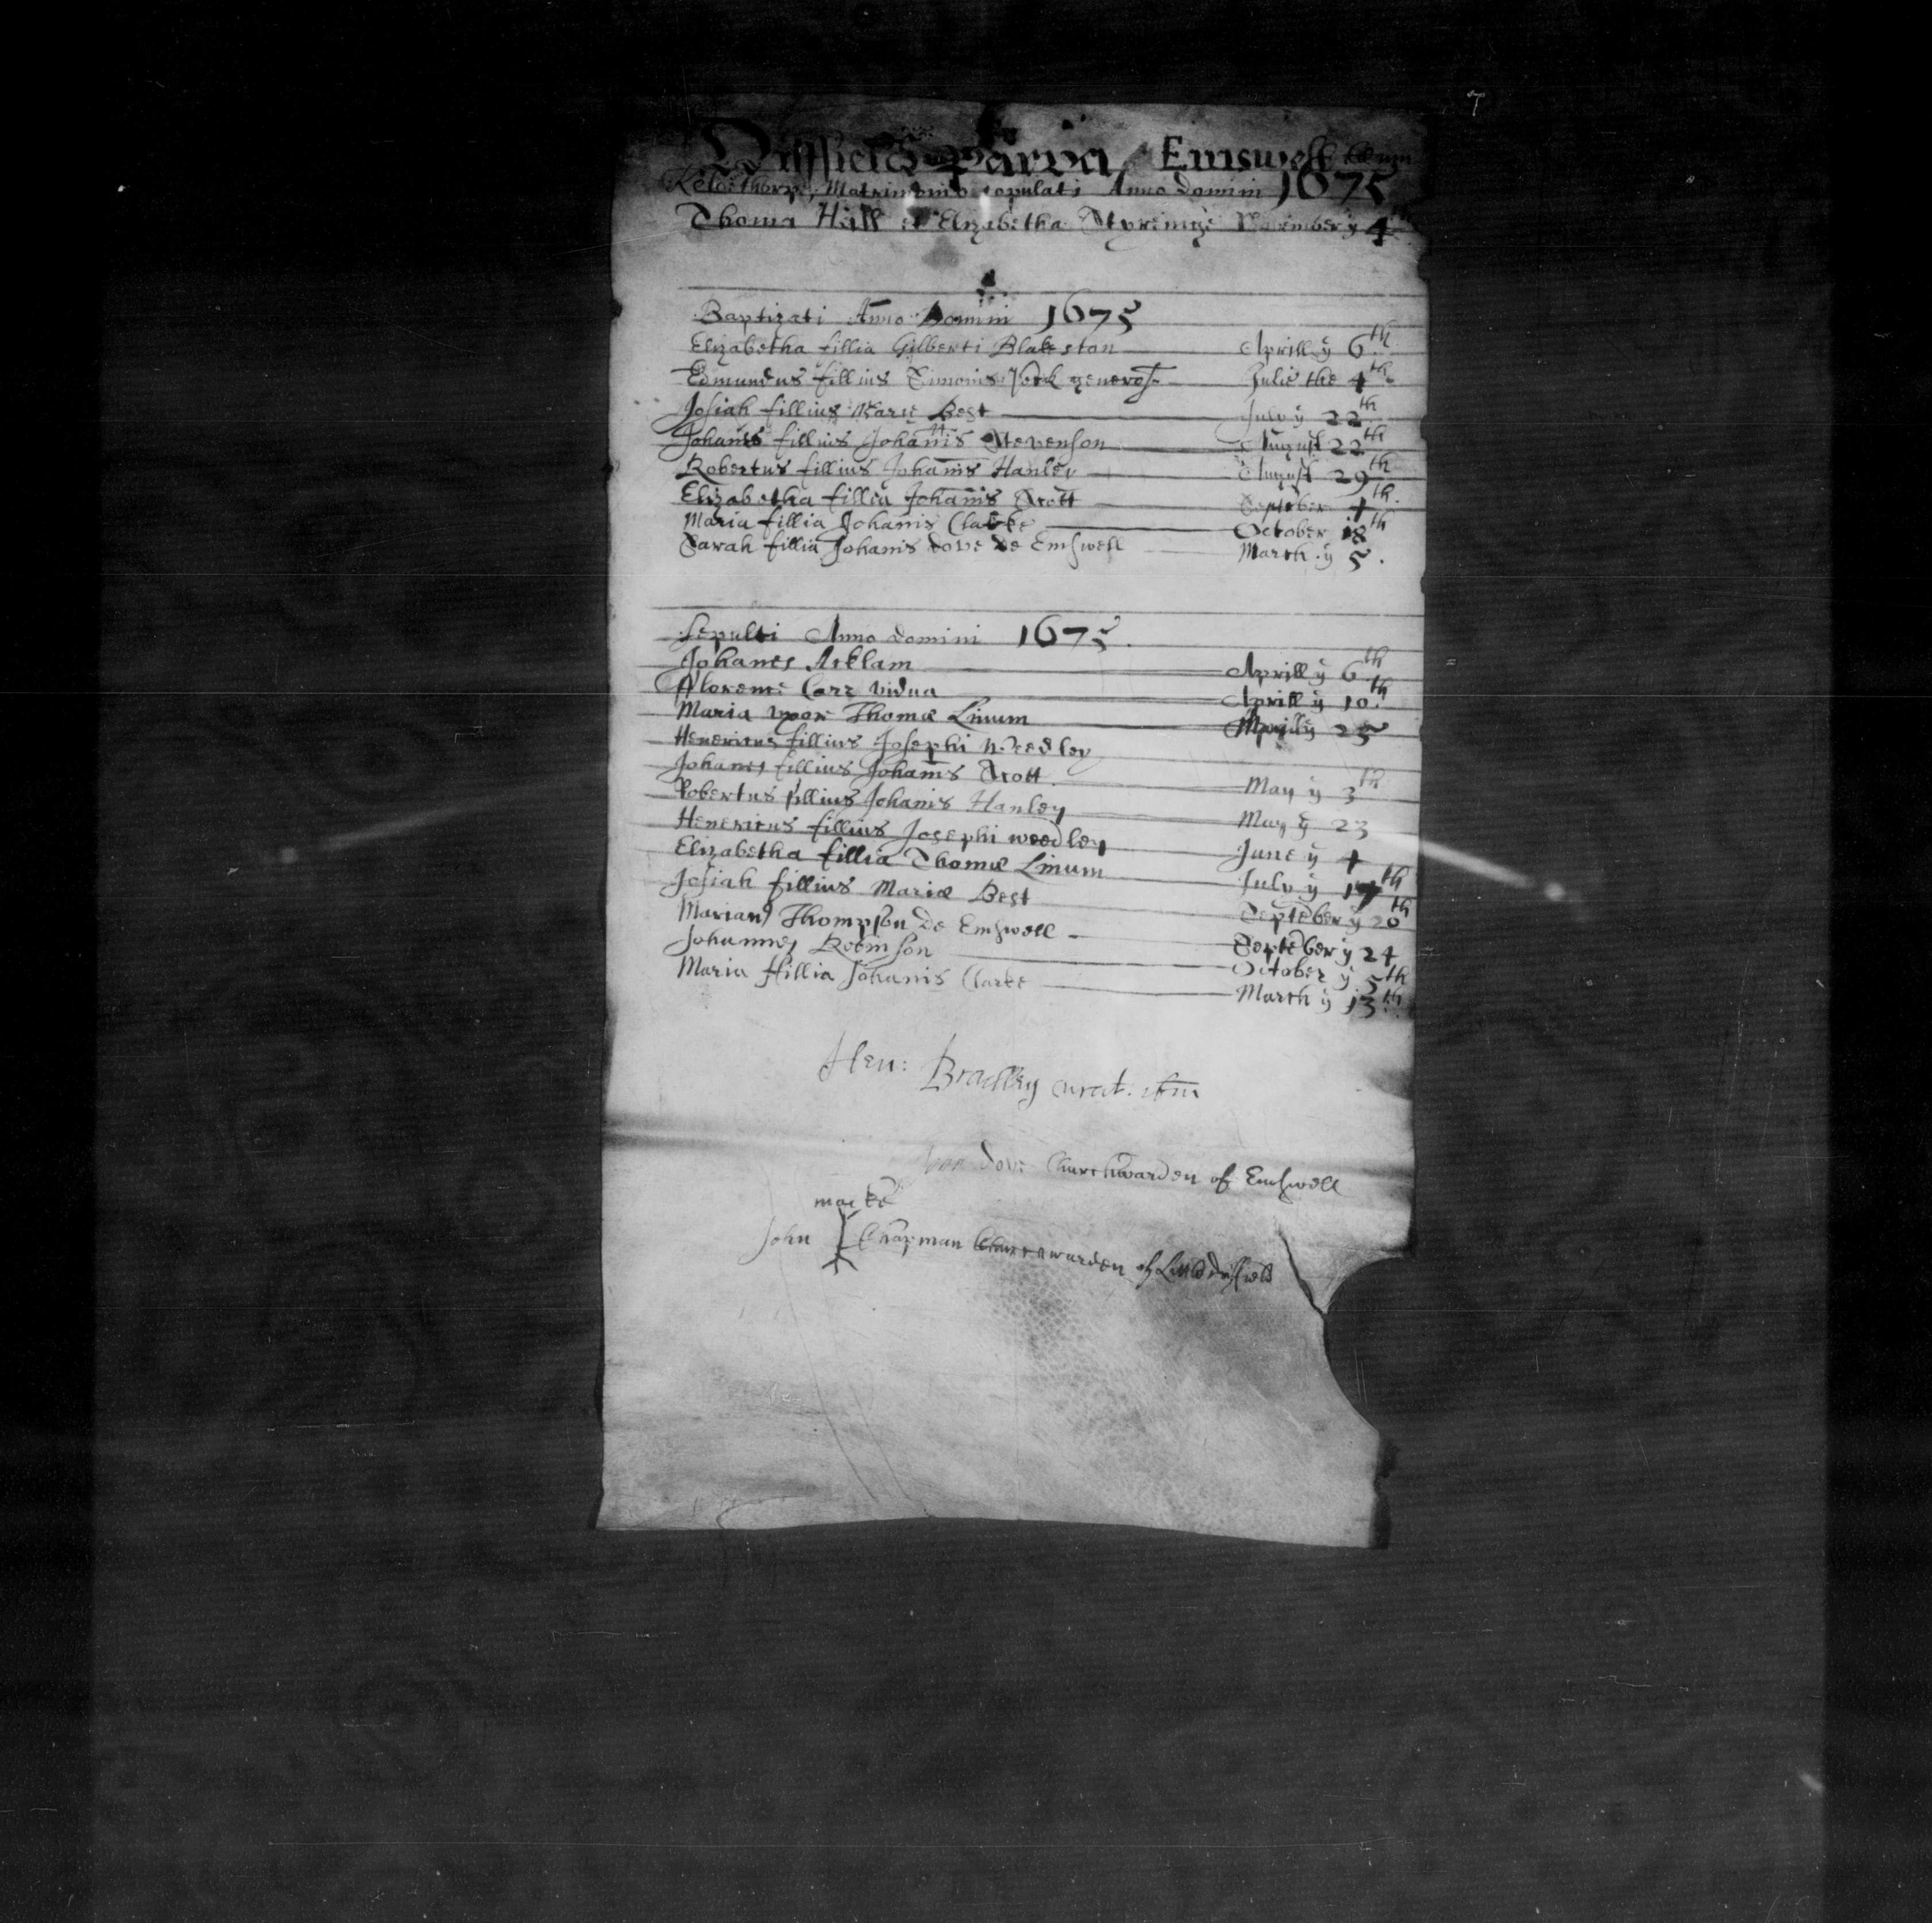 Driffield Parva, Emswell cum
Kelethorp, Matrimonio copulati Anno Domini 1675
Thoma Hall et Elizabetha November ÿ 4th
Baptizati Anno Domini 1675
Elizabetha fillia Gilberti Blakeston Aprill ÿ 6th
Edmundus fillius Simonis York generos Julie the 4th
Josiah fillius Marie Best July ÿ 22th
Johanes fillius Johanis Stevenson August 22th
Robertus fillius Johanis Hanley August 29th
Elizabetha fillia Johanis Scott September 4th
Maria fillia Johanis Clarke October 18th
Sarah fillia Johanis dove de Emswell March ÿ 5.
Sepulti Anno Domini 1675
Johanes Acklam Aprill ÿ 6th
Carr vidua Aprill ÿ 10th
Maria uxor Thomæ Linum Aprill ÿ 25
Henericus fillius Josephi Weedley
Johanes fillius Johanis Scott May ÿ 3th
Robertus fillius Johanis Hanley May ÿ 23
Henericus fillius Josephi weedley June ÿ 4
Elizabetha fillia Thomæ Linum July ÿ 17th
Josiah fillius Mariæ Best September ÿ 20th
Thompson de Emswell September ÿ 24
Johannes Robinson October ÿ 5th
Maria fillia Johanis Clarke March ÿ 13th
Hen: Bradley curat. ibm
dove Churchwarden of Emswell
marke
John Chapman Churchwarden of Little driffield